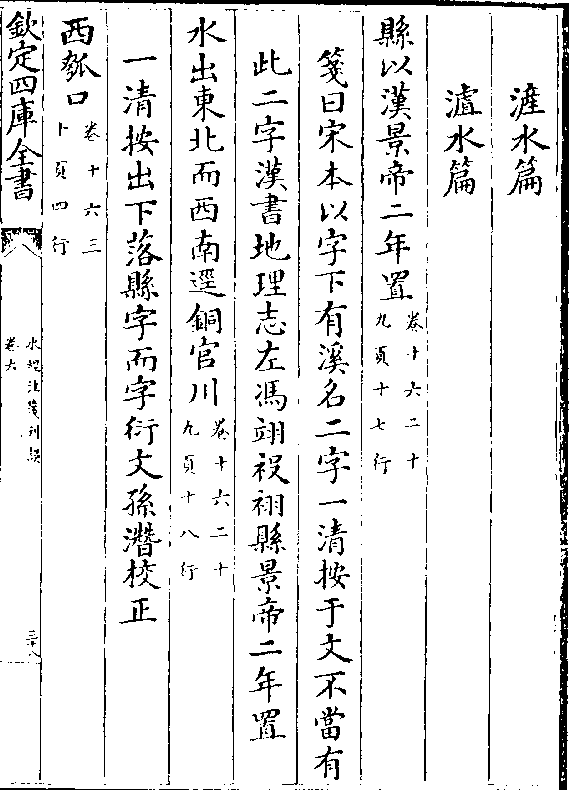 滻水篇
瀘水篇
縣以漢景帝二年置卷十六二十九頁十七行
箋曰宋本以字下有溪名二字一清按于文不當有
此二字漢書地理志左馮翊祋祤縣景帝二年置
水出東北而西南逕銅官川卷十六二十九頁十八行
一清按出下落縣字而字衍文孫潛校正
西瓠口卷十六三十頁四行
欽定四庫全書
水經注箋刊誤
卷六
三十八